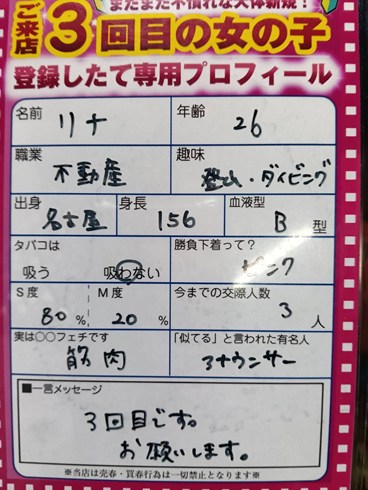 まだまだ不慣れな大体新規！
ご来店3回目の女の子
登録したて専用プロフィール
名前 リナ 年齢 26
職業 不動産 趣味 登山・ダイビング
出身 名古屋 身長 156 血液型 B 型
タバコは 吸う 吸わない 勝負下着って？ ピンク
S度 80% M度 20% 今までの交際人数 3人
実は○○フェチです 筋肉 「似てる」と言われた有名人 アナウンサー
■一言メッセージ
3回目です。
お願いします。
※当店は売春・買春行為は一切禁止となります※